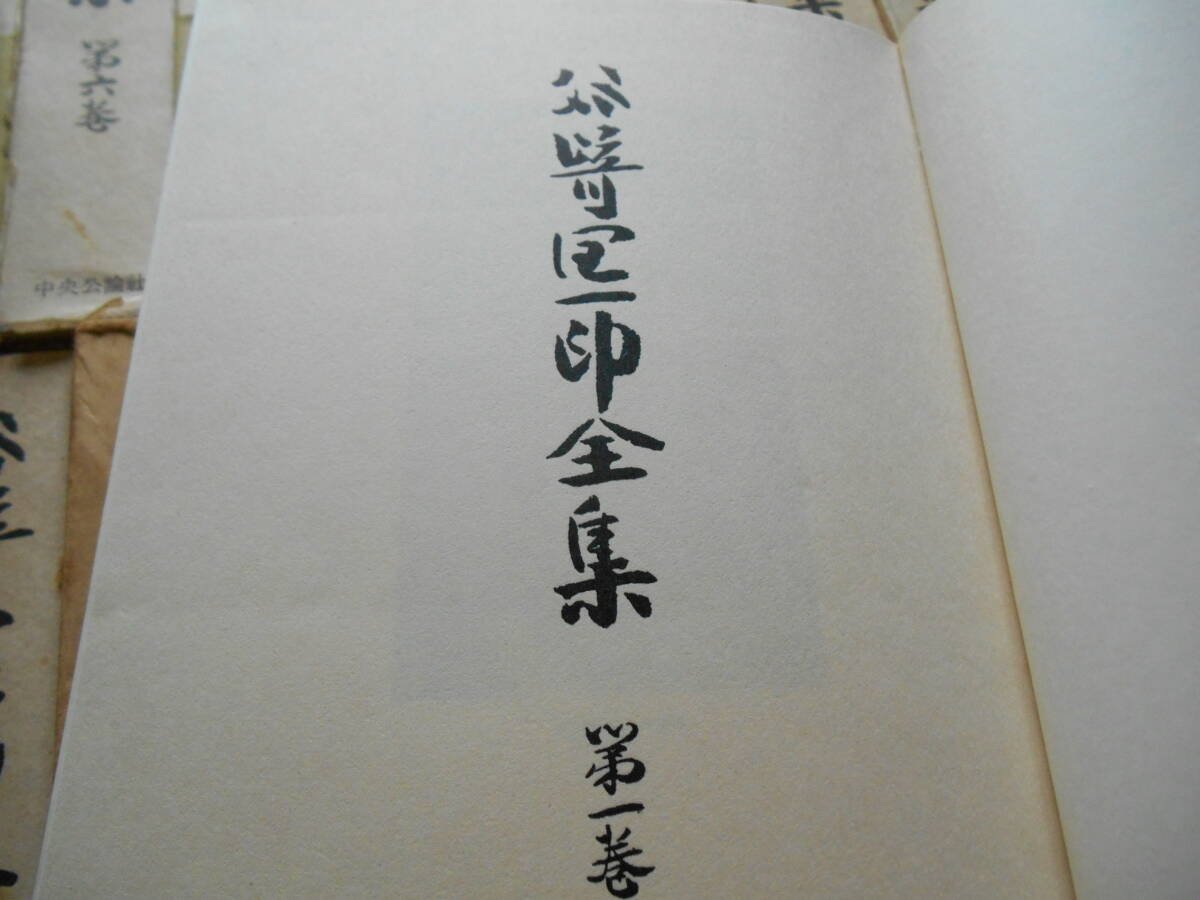 谷崎潤一郎全集
第一巻
第六巻
中央公論社